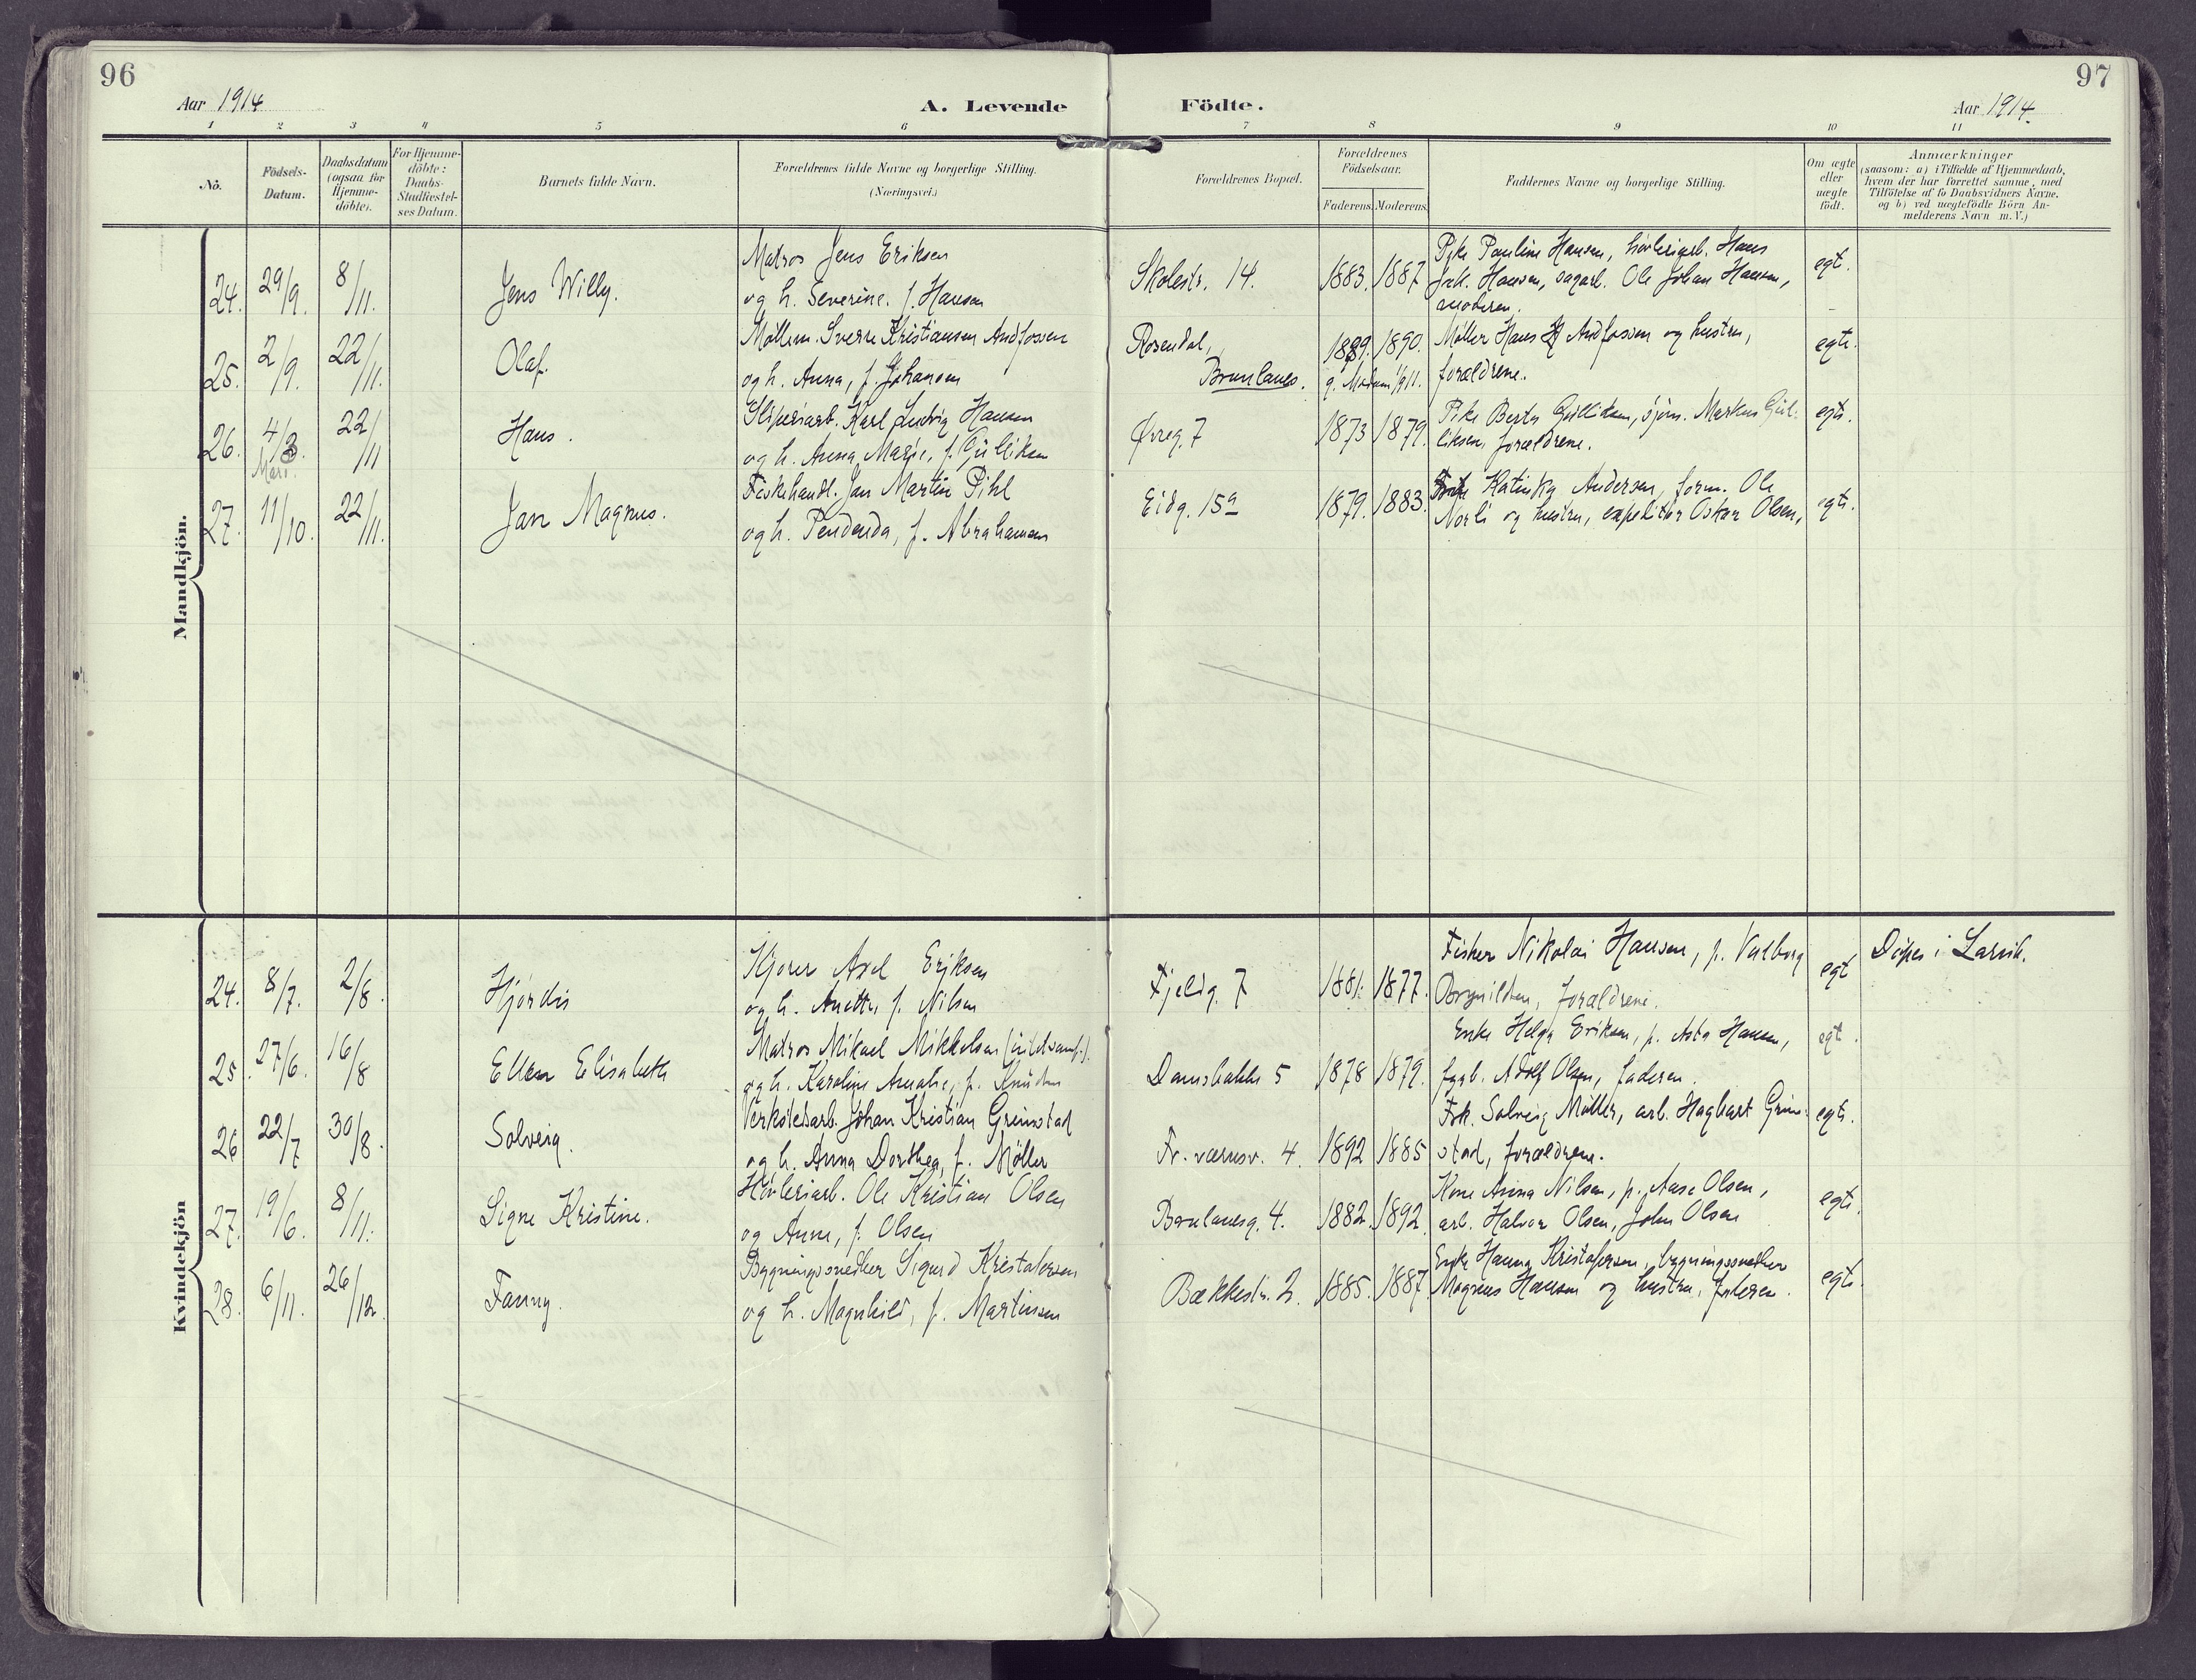 96
Aar 1914
A. Levende
Födte.
Aar 1914.
97
1 2 3 4 5 6 7 8 9 10 11
No.
Födsels-
Datum.
Daabsdatum
(ogsaa for
Hjemme-
döbte).
For Hjemme-
döbte:
Daabs-
Stadfæstel-
ses Datum.
Barnets fulde Navn.
Forældrenes fulde Navne og borgerlige Stilling.
(Næringsvei.)
Forældrenes Bopæl.
Forældrenes
Födselsaar.
Faderens. Moderens.
Faddernes Navne og borgerlige Stilling.
Om ægte
eller
uægte
födt.
Anmærkninger
(saasom: a) i Tilfælde af Hjemmedaab,
hvem der har forrettet samme, med
Tilföielse af to Daabsvidners Navne.
og b) ved uægtefödte Börn An-
melderens Navn m. V.)
Mandkjön.
24. 29/9. 8/11. Jens Willy.
Matros Jens Eriksen
og h. Severine. f. Hansen
Skolestr. 14. 1883. 1887
Pike Pauline Hansen, høvleriarb. Hans
Jak. Hansen, sagarb. Ole Johan Hansen,
moderen.
egt.
25. 2/9. 22/11. Olaf.
Møllem. Sverre Kristiansen Andfossen
og h. Anna, f. Johansen
Rosendal,
Brunlanes.
1889. 1890.
g. Modum 1911.
Møller Hans Andfossen og hustru,
forældrene.
egte.
26. 4/3. 22/11 Hans.
Mars.
Sliperiarb. Karl Ludvig Hansen
og h. Anna Marie, f. Gulliksen
Øvreg. 7 1873 1879.
Pike Berta Gulliksen, sjøm. Markus Gul-
liksen, forældrene.
egte.
27. 11/10. 22/11. Jan Magnus.
Fiskehandl. Jan Martin Pihl
og h. Pendenda, f. Abrahamsen
Eidg. 15a 1879. 1883.
Katinka Andersen, form. Ole
Norli og hustru, expeditør Oskar Olsen,
egte.
Kvindekjön
24. 8/7. 2/8. Hjørdis
Kjører Axel Eriksen
og h. Anette f. Nilsen
Fjeldg. 7 1881. 1877.
Fisker Nikolai Hansen, p. Valborg
Brynildsen, forældrene.
egt
Døpes i Larvik.
25. 27/6. 16/8 Ellen Elisabeth
Matros Mikael Mikkelsen
og h. Karoline Amalie, f. Knudsen
Damsbakke 5 1878 1879.
Enke Helga Eriksen, p. Asta Hansen,
Adolf Olsen, faderen.
egt.
26 22/7 30/8. Solveig.
Verkstedsarb. Johan Kristian Grimstad
og h. Anna Dorthea, f. Møller
Fr. værnsv. 4. 1892 1885
Frk. Solveig Møller, arb. Hagbart Grim-
stad, forældrene.
egte.
27. 19/6. 8/11. Signe Kristine.
Høvleriarb. Ole Kristian Olsen
og Anne, f. Olsen
Brunlanesg. 4. 1882. 1892.
Kone Anna Nilsen, p. Aase Olsen,
arb. Halvor Olsen, John Olsen
egte.
28. 6/11. 26/12. Fanny.
Bygningssnedker Sigurd Kristofersen
og h. Magnhild, f. Martinsen
Bækkestr. 2. 1885. 1887.
Enke Hanna Kristofersen, bygningssnedker
Magnus Hansen og hustru, faderen.
egte.